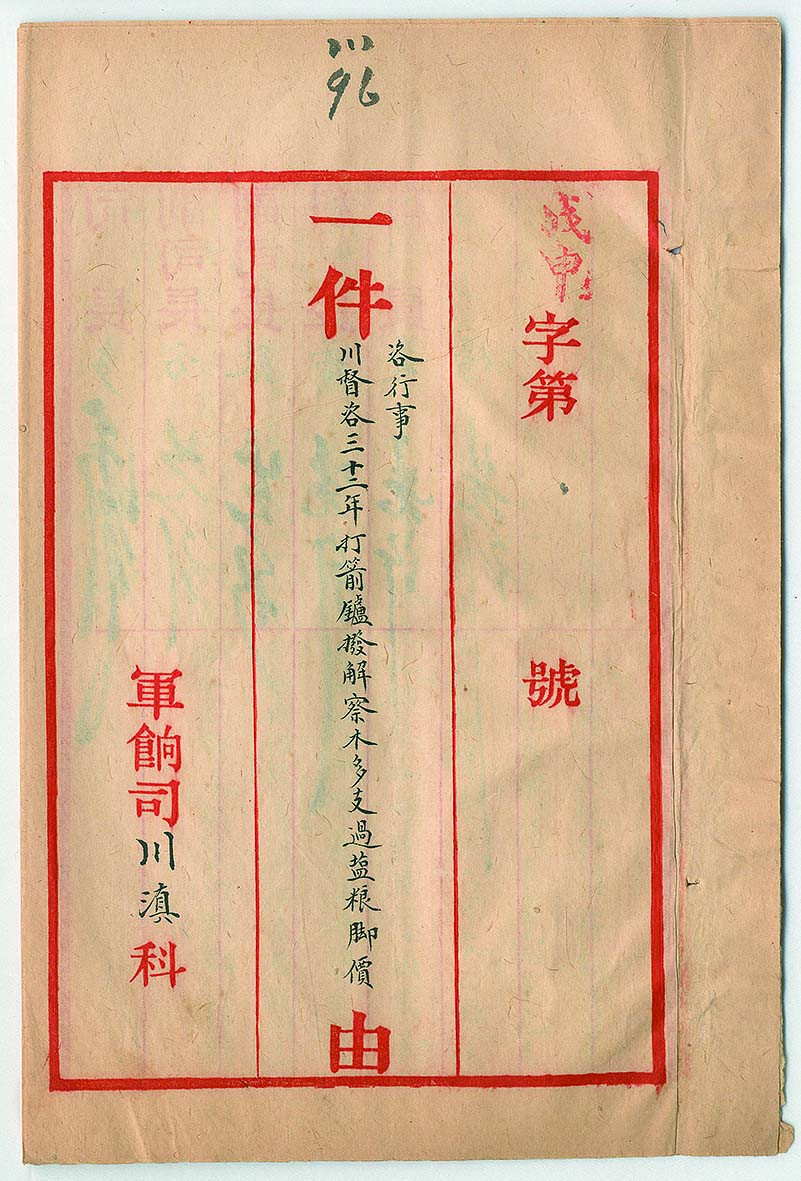 川
96
戊申
字第 號
一件
咨行事
川督咨三十二年打箭鑪撥解察木多支過盐粮脚價
由
軍餉司川滇科